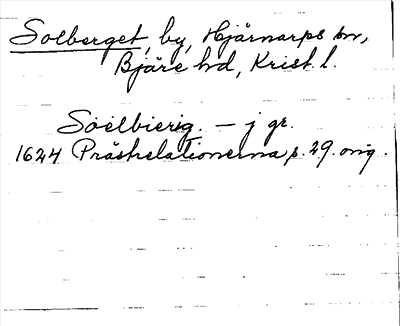 Solberget, by, Hjärnarps sn,
Bjäre hd, Krist. l.
Soelbierig. — j gr.
1624 Prästrelationerna s. 29. orig.